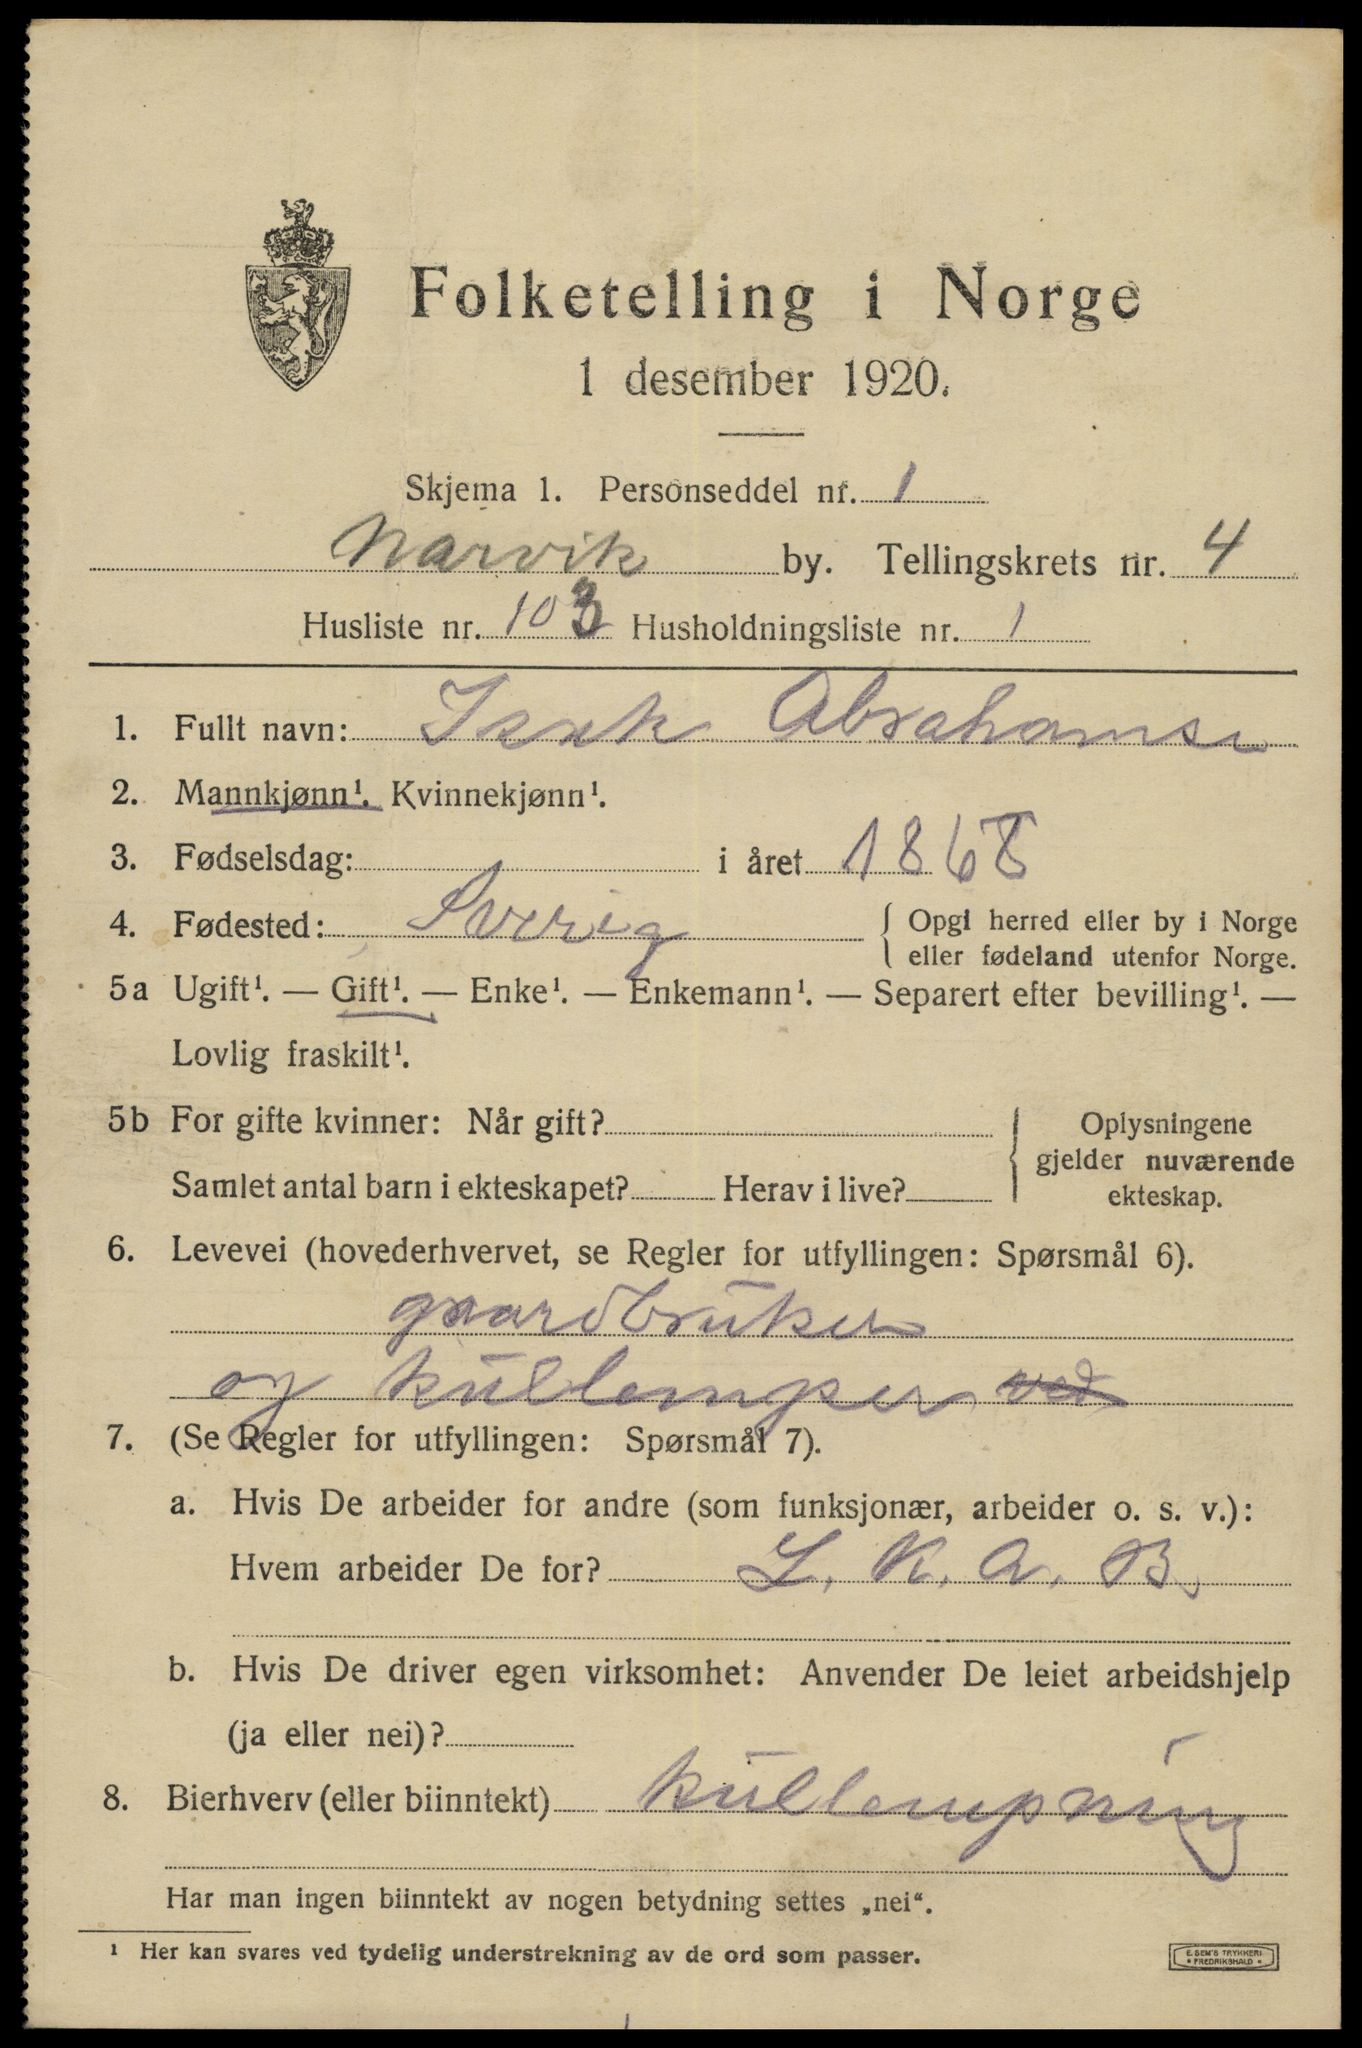 Folketelling i Norge
1 desember 1920.
Skjema 1. Personseddel nr. 1
Narvik by. Tellingskrets nr. 4
Husliste nr. 103 Husholdningsliste nr. 1
1. Fullt navn: Isak Abrahamsen
2. Mannkjønn¹. Kvinnekjønn¹.
3. Fødselsdag: i året 1868
4. Fødested: Sverig { Opgi herred eller by i Norge
eller fødeland utenfor Norge.
5a Ugift¹. — Gift¹. — Enke¹. — Enkemann¹. — Separert efter bevilling¹. —
Lovlig fraskilt¹.
5b For gifte kvinner: Når gift? Oplysningene
gjelder nuværende
Samlet antal barn i ekteskapet? Herav i live? ekteskap.
6. Levevei (hovederhvervet, se Regler for utfyllingen: Spørsmål 6).
gaardbruker
og kullemper ved
7. (Se Regler for utfyllingen: Spørsmål 7).
a. Hvis De arbeider for andre (som funksjonær, arbeider o. s. v.):
Hvem arbeider De for? L. K. A. B.
b. Hvis De driver egen virksomhet: Anvender De leiet arbeidshjelp
(ja eller nei)?
8. Bierhverv (eller biinntekt) kullempning
Har man ingen biinntekt av nogen betydning settes „nei“.
¹ Her kan svares ved tydelig understrekning av de ord som passer.
E. SEM'S TRYKKERI
• FREDRIKSHALD •